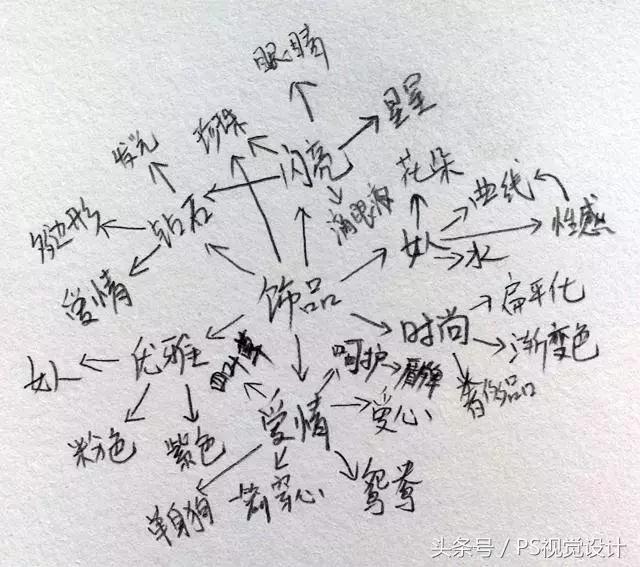 眼睛
星星
珍珠
发光
闪亮
花朵
曲线
滴眼液
钻石
多边形
性感
女人
水
爱情
饰品
扁平化
时尚
渐变色
优雅
女人
四叶草
呵护
奢饰品
爱心
爱情
粉色
紫色
箭穿心
鸳鸯
单身狗
头条号／PS视觉设计